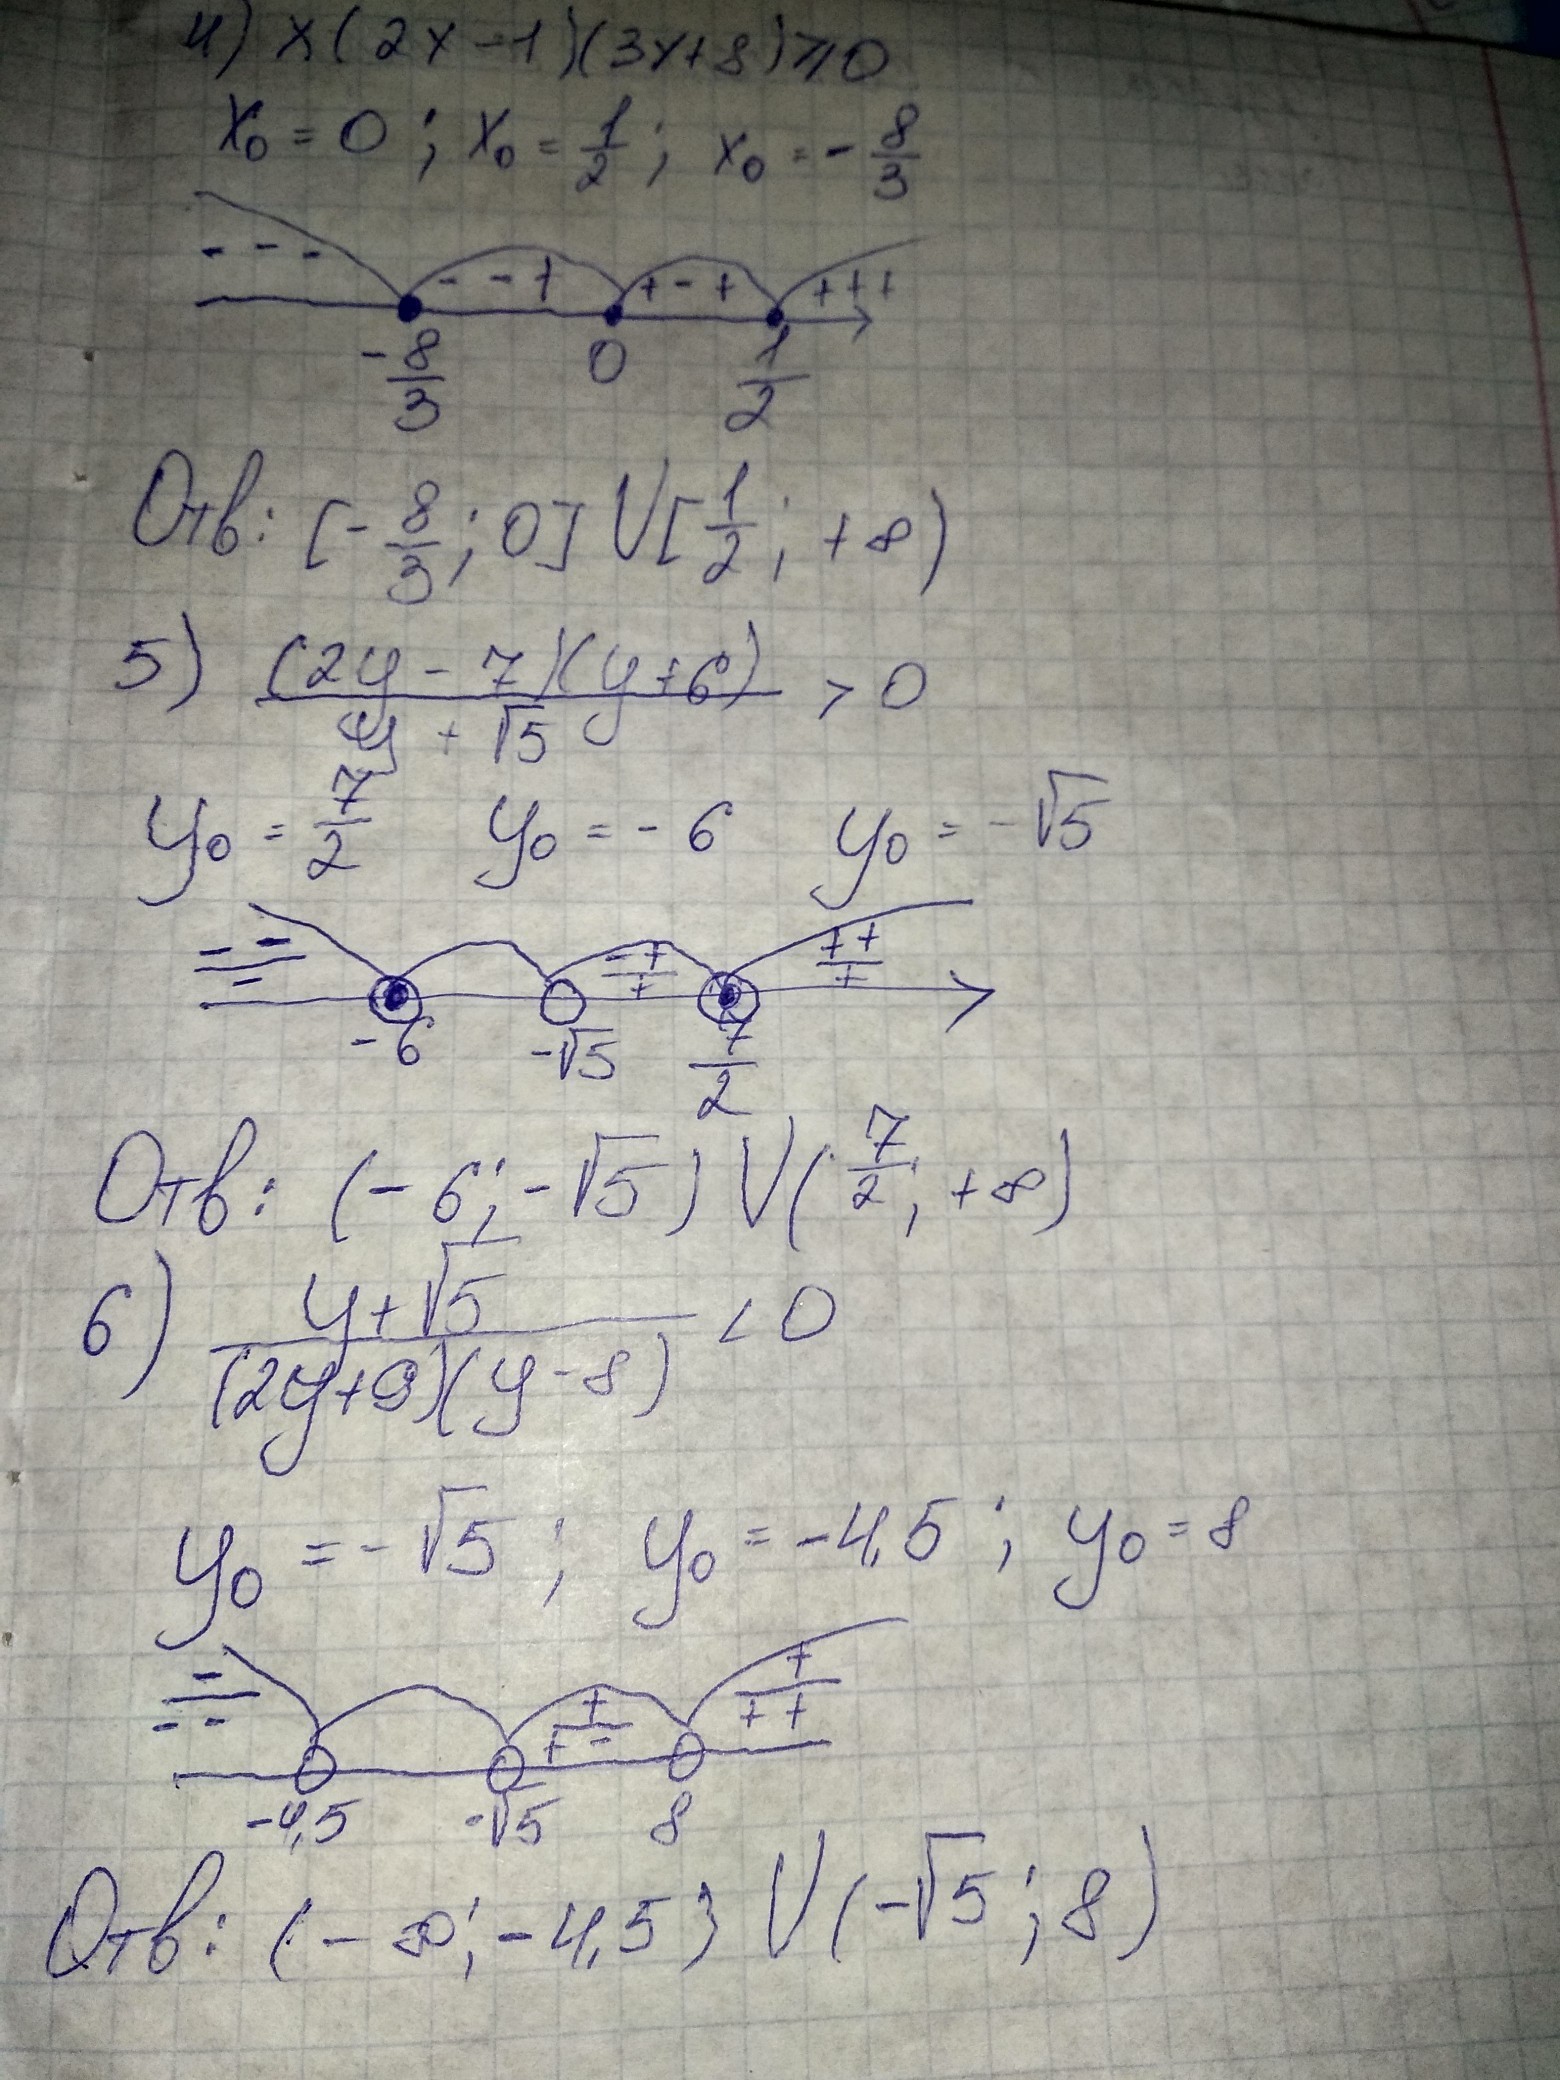 4) x(2x-1)(3x+8)≥0
x₀ = 0; x₀ = 1/2; x₀ = -8/3
- - - - - + + - + + + +
-8/3 0 1/2
Отв: [-8/3; 0] V [1/2; +∞)
5) (2y - 7)(y+6) / y + √5 > 0
y₀ = 7/2 y₀ = -6 y₀ = -√5
- - / - - + / + + + / +
-6 -√5 7/2
Отв: (-6; -√5) V (7/2; +∞)
6) y+√5 / (2y+9)(y-8) < 0
y₀ = -√5; y₀ = -4,5; y₀ = 8
- / - - + / + - + / + +
-4,5 -√5 8
Отв: (-∞; -4,5) V (-√5; 8)